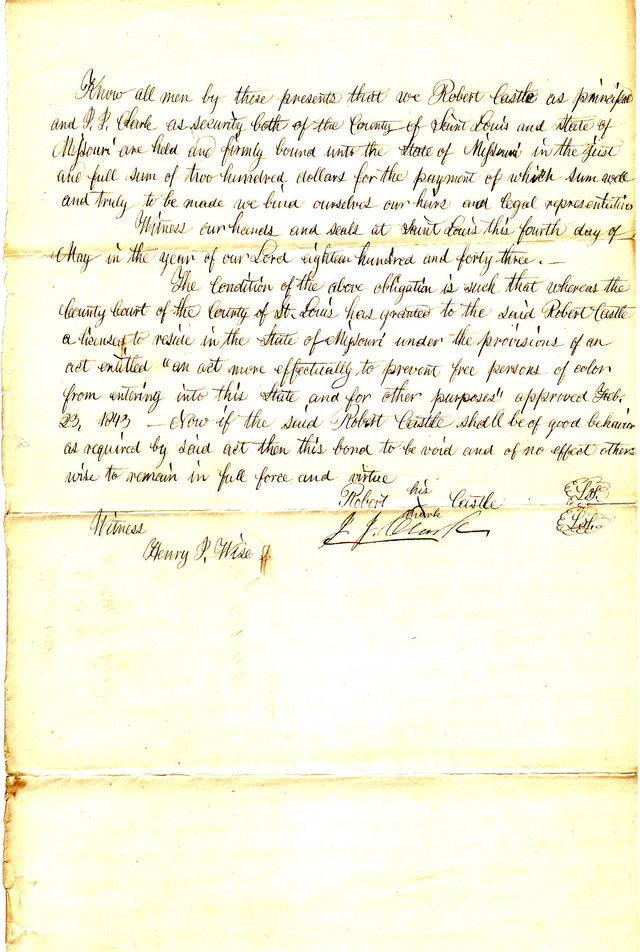 Know all men by these presents that we Robert Castle as principal
and J. J. Clark as security both of the County of Saint Louis and State of
Missouri are held and firmly bound unto the State of Missouri in the just
and full sum of two hundred dollars for the payment of which sum well
and truly to be made we bind ourselves our heirs and legal representatives
Witness our hands and seals at Saint Louis this fourth day of
May in the year of our Lord eighteen hundred and forty three. —
The Condition of the above obligation is such that whereas the
County Court of the County of St. Louis has granted to the said Robert Castle
a licensed to reside in the State of Missouri under the provisions of an
act entitled "an act more effectually to prevent free persons of color
from entering into this State and for other purposes" approved Feb.
23, 1843 — Now if the said Robert Castle shall be of good behavior
as required by said act then this bond to be void and of no effect other
wise to remain in full force and virtue
Robert his Castle L.S.
mark
J. J. Clark L.S.
Witness
Henry P. Wise